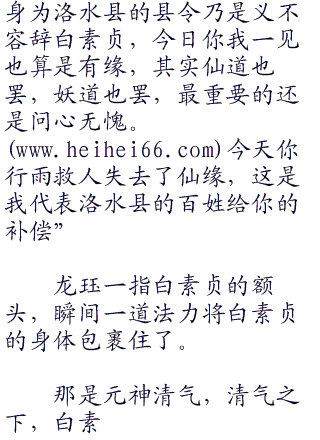 身为洛水县的县令乃是义不
容辞白素贞，今日你我一见
也算是有缘，其实仙道也
罢，妖道也罢，最重要的还
是问心无愧。
(www.heihei66.com)今天你
行雨救人失去了仙缘，这是
我代表洛水县的百姓给你的
补偿”
龙珏一指白素贞的额
头，瞬间一道法力将白素贞
的身体包裹住了。
那是元神清气，清气之
下，白素